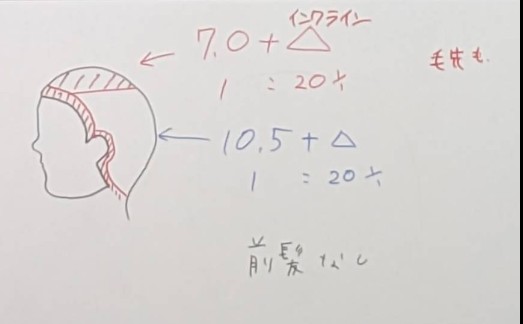 インクライン
7.0+△
1 : 20%
毛先も
10.5+△
1 : 20%
前髪なし